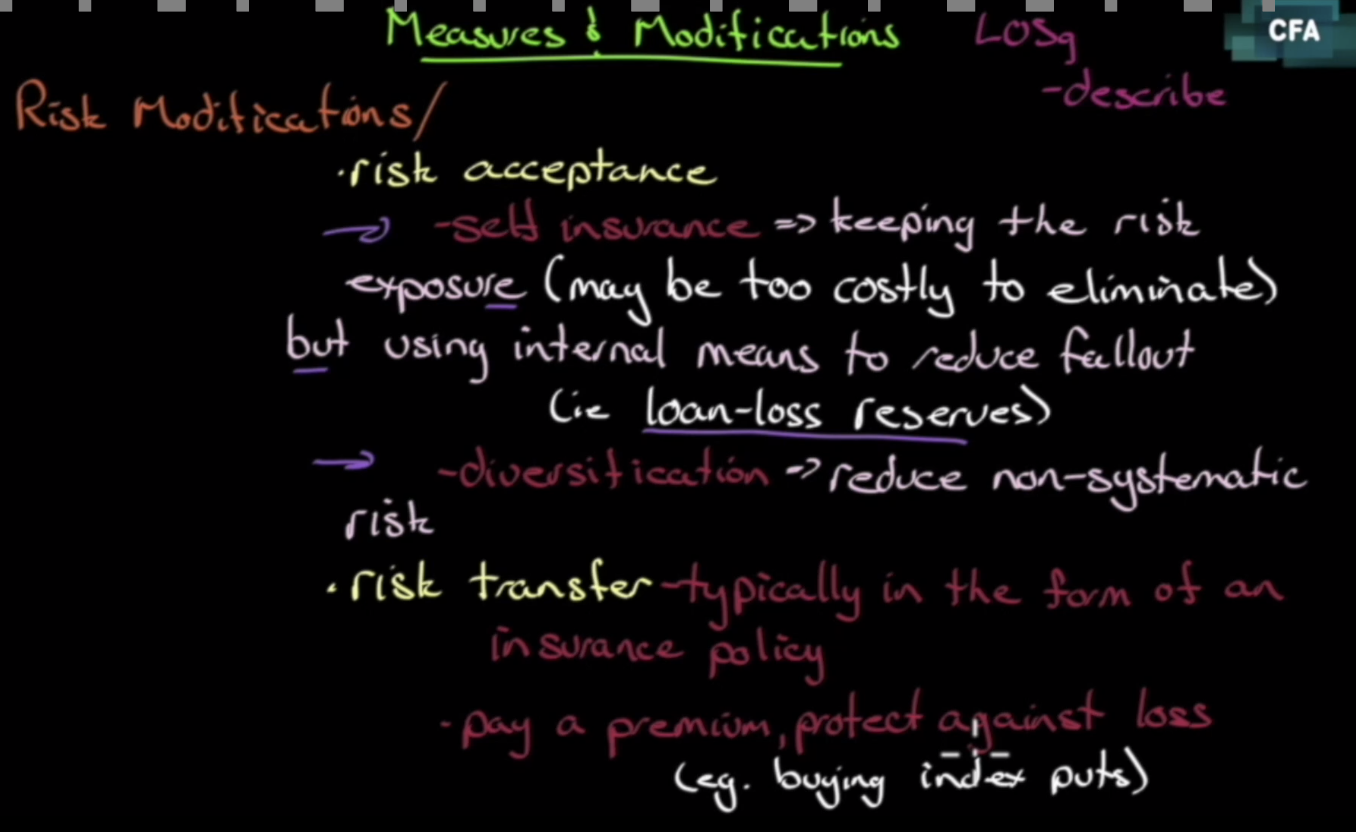 Measures & Modifications LOSg
CFA
-describe
Risk Modifications/
·risk acceptance
→ -self insurance => keeping the risk
exposure (may be too costly to eliminate)
but using internal means to reduce fallout
(ie loan-loss reserves)
→ -diversification -> reduce non-systematic
risk
·risk transfer-typically in the form of an
insurance policy
-pay a premium, protect against loss
(eg. buying index puts)